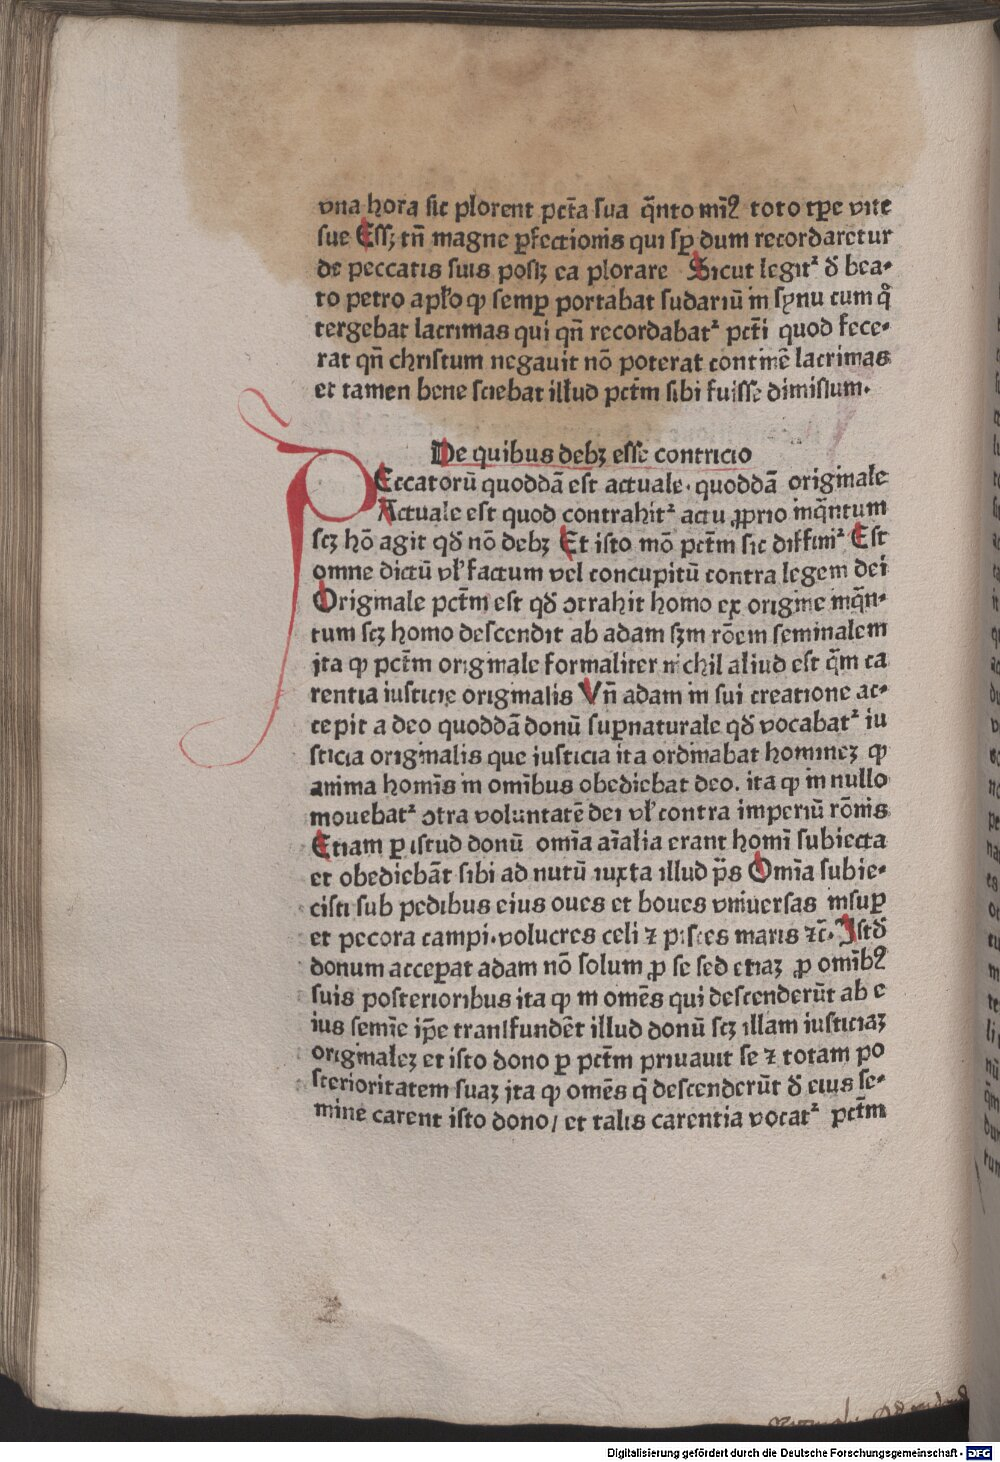 vna hora sic plorent pctā sua q̄nto miꝰ toto tꝑe vite
sue Eſſꝫ tn̄ magne ꝑfectionis qui sꝑ dum recordaretur
de peccatis suis poſſꝫ ea plorare Sicut legitᷣ đ bea⸗
to petro apl̄o ꝙ semꝑ portabat sudariū in synu cum q̊
tergebat lacrimas qui qn̄ recordabatᷣ pctī quod fece⸗
rat qn̄ christum negauit nō poterat continē lacrimas
et tamen bene sciebat illud pctm̄ sibi fuisse dimissum.
De quibus debꝫ esse contricio
PEccatorū quoddā est actuale. quoddā originale
Actuale est quod contrahitᷣ actu ꝓprio inqn̄tum
scꝫ hō agit qđ nō debꝫ Et isto mō pctm̄ sic diffiniᷣ Est
omne dictū vl̄ factum vel concupitū contra legem dei
Originale pctm̄ est qđ ↄtrahit homo ex origine inqn̄⸗
tum scꝫ homo descendit ab adam sꝫm rōem seminalem
jta ꝙ pctm̄ originale formaliter nichil aliud est qm̄ ca
rentia iusticie originalis Vn̄ adam in sui creatione ac⸗
cepit a deo quoddā donū suꝑnaturale qđ vocabatᷣ iu
sticia originalis que iusticia ita ordinabat homineꝫ ꝙ
anima homīs in omībus obediebat deo. ita ꝙ in nullo
mouebatᷣ ↄtra voluntatē dei vl̄ contra imperiū rōnis
Etiam ꝑ istud donū omīa aīalia erant homī subiecta
et obediebāt sibi ad nutū iuxta illud p̄s Omīa subie⸗
cisti sub pedibus eius oues et boues vniuersas insuꝑ
et pecora campi. volucres celi ⁊ pisces maris ⁊c̄. Istđ
donum acceꝑat adam nō solum ꝓ se sed etiaꝫ ꝓ omībꝰ
suis posterioribus ita ꝙ in omēs qui descenderūt ab e
ius semīe ip̄e transfundēt illud donū scꝫ illam iusticiaꝫ
originaleꝫ et isto dono ꝑ pctm̄ priuauit se ⁊ totam po
sterioritatem suaꝫ jta ꝙ omēs q̇ descenderūt đ eius se⸗
mine carent isto dono/ et talis carentia vocatᷣ pctm̄
Digitalisierung gefördert durch die Deutsche Forschungsgemeinschaft - DFG